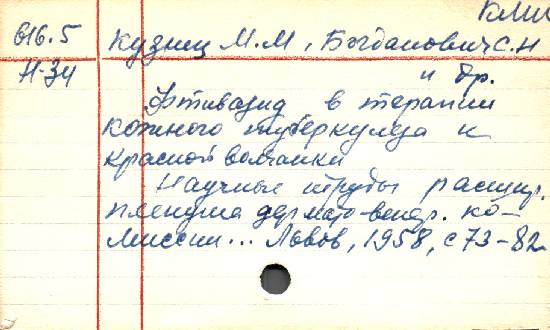 КМИ
616.5 Кузнец М.М, Богданович С.Н
Н-34 и др.
Фтивазид в терапии
кожного туберкулеза и
красной волчанки
Научные труды расшир.
пленума дермато-венер. ко-
миссии... Львов, 1958, с 73-82